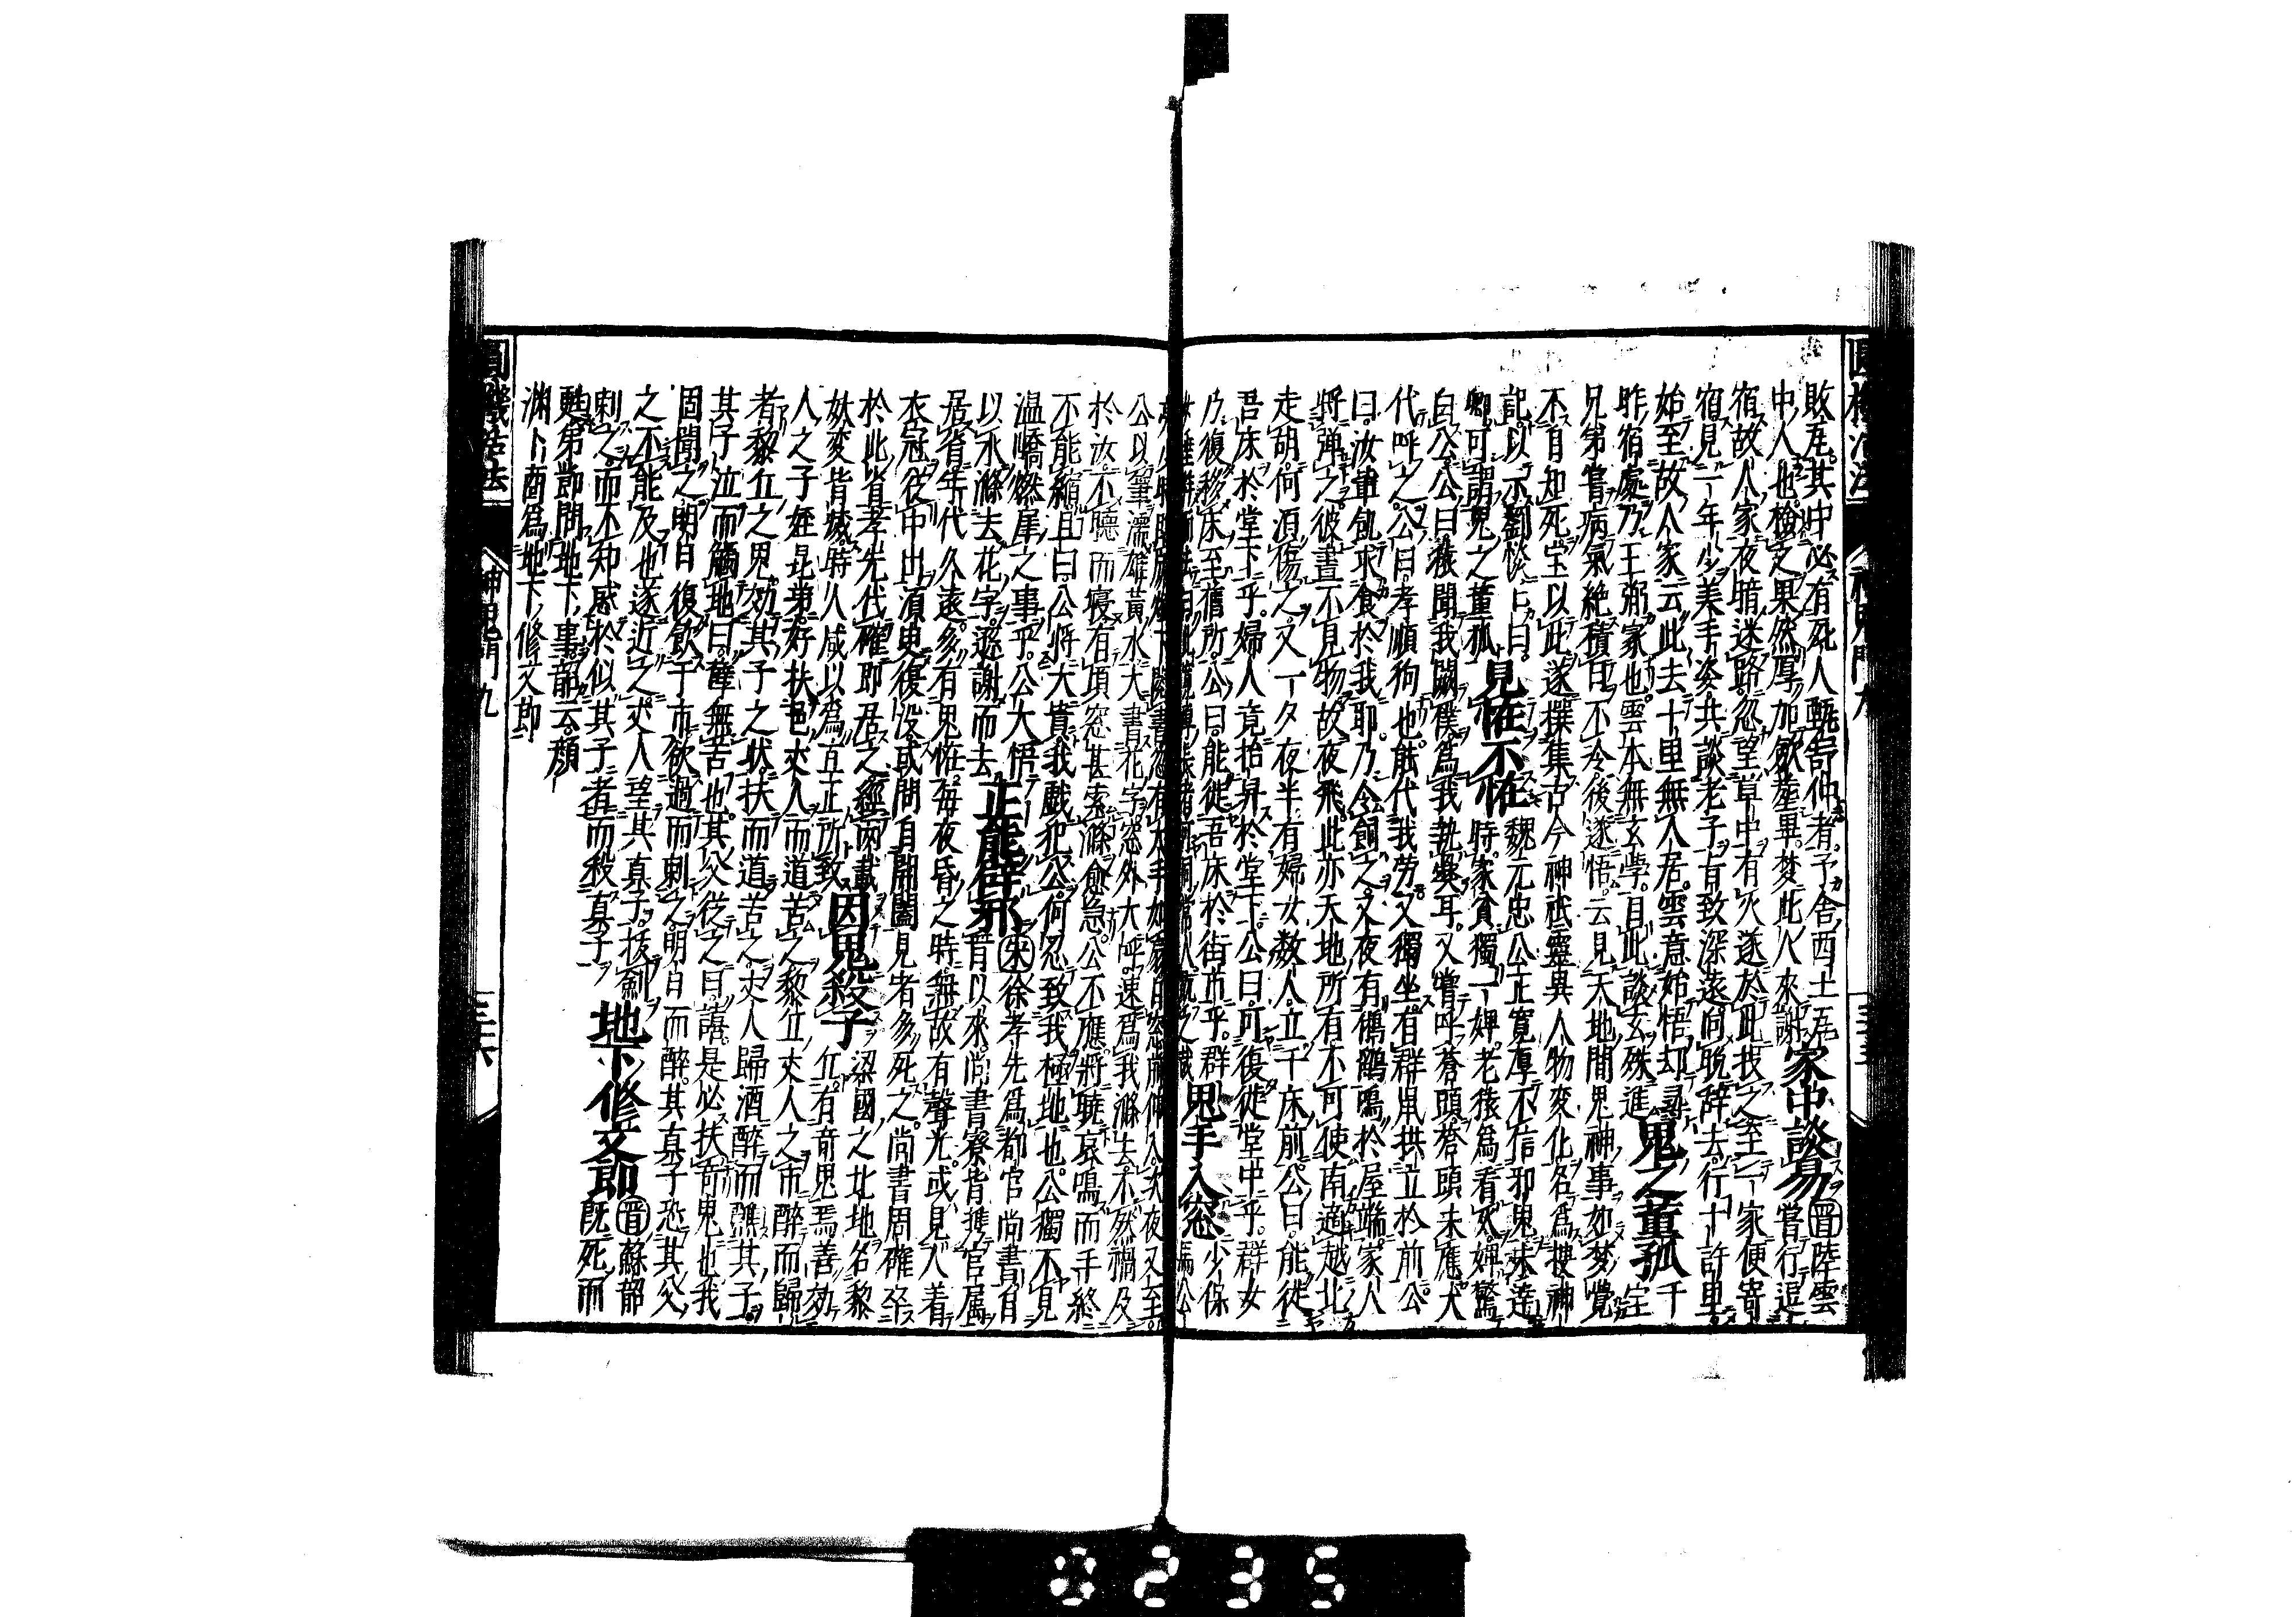 敗瓦其中必有死人甄舒仲者予舍西土瓦
中人也檢之果然厚加斂塟畢夢此人來謝家中談易晋陸雲嘗行逗
宿故人家夜暗迷路忽望草中有火遂於此投之至一家便寄
宿見一年少美手姿共談老子有致深遠向晚辞去行十許里
始至故人家云此去十里無人居雲意始悟却尋
昨宿處乃王弼家也雲本無玄學自此談玄殊進鬼之董狐干宝
兄弟嘗病氣絶積日不冷後遂悟云見天地間鬼神事如夢覺
不自知死宝以此遂撰集古今神祇靈異人物変化名爲捜神
記以示劉惔曰
卿可謂鬼之董狐見怪不怪魏元忠公正寛厚不信邪鬼未達
時家貧獨一婢老猿爲看火婢驚
白公公曰猿聞我闕僕爲我執爨耳又嘗呼蒼頭蒼頭未應犬
代呼之公曰孝順狗也能代我労又獨坐有群鼠拱立於前公
曰汝輩飢求食於我耶乃令飼之又夜有鵂鶹鳴於屋端家人
將弾之彼晝不見物故夜飛此亦天地所有不可使南適越北
走胡何須傷之又一夕夜半有婦女数人立于床前公曰能徙
吾床於堂下乎婦人竟抬昇於堂下公曰可復徙堂中乎群女
乃復移床至舊所公曰能徙吾床於街市乎群
鬼手入窓少保馬公
公以筆濡雄黄水大書花字窓外大呼速爲我滌去不然禍及
於汝不聽而寝有頃窓甚索滌愈急公不應將曉哀鳴而手終
不能縮且曰公將大貴我戯犯公何忍致我極地也公獨不見
温嶠燃犀之事乎公大悟
以水滌去花字遜謝而去正能辟邪宋徐孝先爲都官尚書自
晋以來尚書寮皆攜官属
居省年代久遠多有鬼怪毎夜昏之時無故有聲光或見人着
衣冠從中出須臾復没或問自開闔見者多死之尚書周確卒
於此省孝先代確即居之經兩載
妖変皆㓕時人咸以爲正所致因鬼殺子梁國之北地名黎
丘有奇鬼焉善効
人之子姪昆弟好扶邑丈人而道苦之黎丘丈人之市醉而歸
者黎丘之鬼効其子之状扶而道苦之丈人歸酒醉而誚其子
其子泣而觸地曰孽無苦也其父従之曰譆是必扶奇鬼也我
固聞之明日復飲于市欲遇而刺之明日而醉其真子恐其父
之不能及也遂近之丈人望其真子抜劍
刺之而不知惑於似其子者而殺真子地下修文郎晋蘇韶
既死而
甦第節問地下事韶云顔
淵卜商爲地下修文郎
神鬼門九
三十六
0235